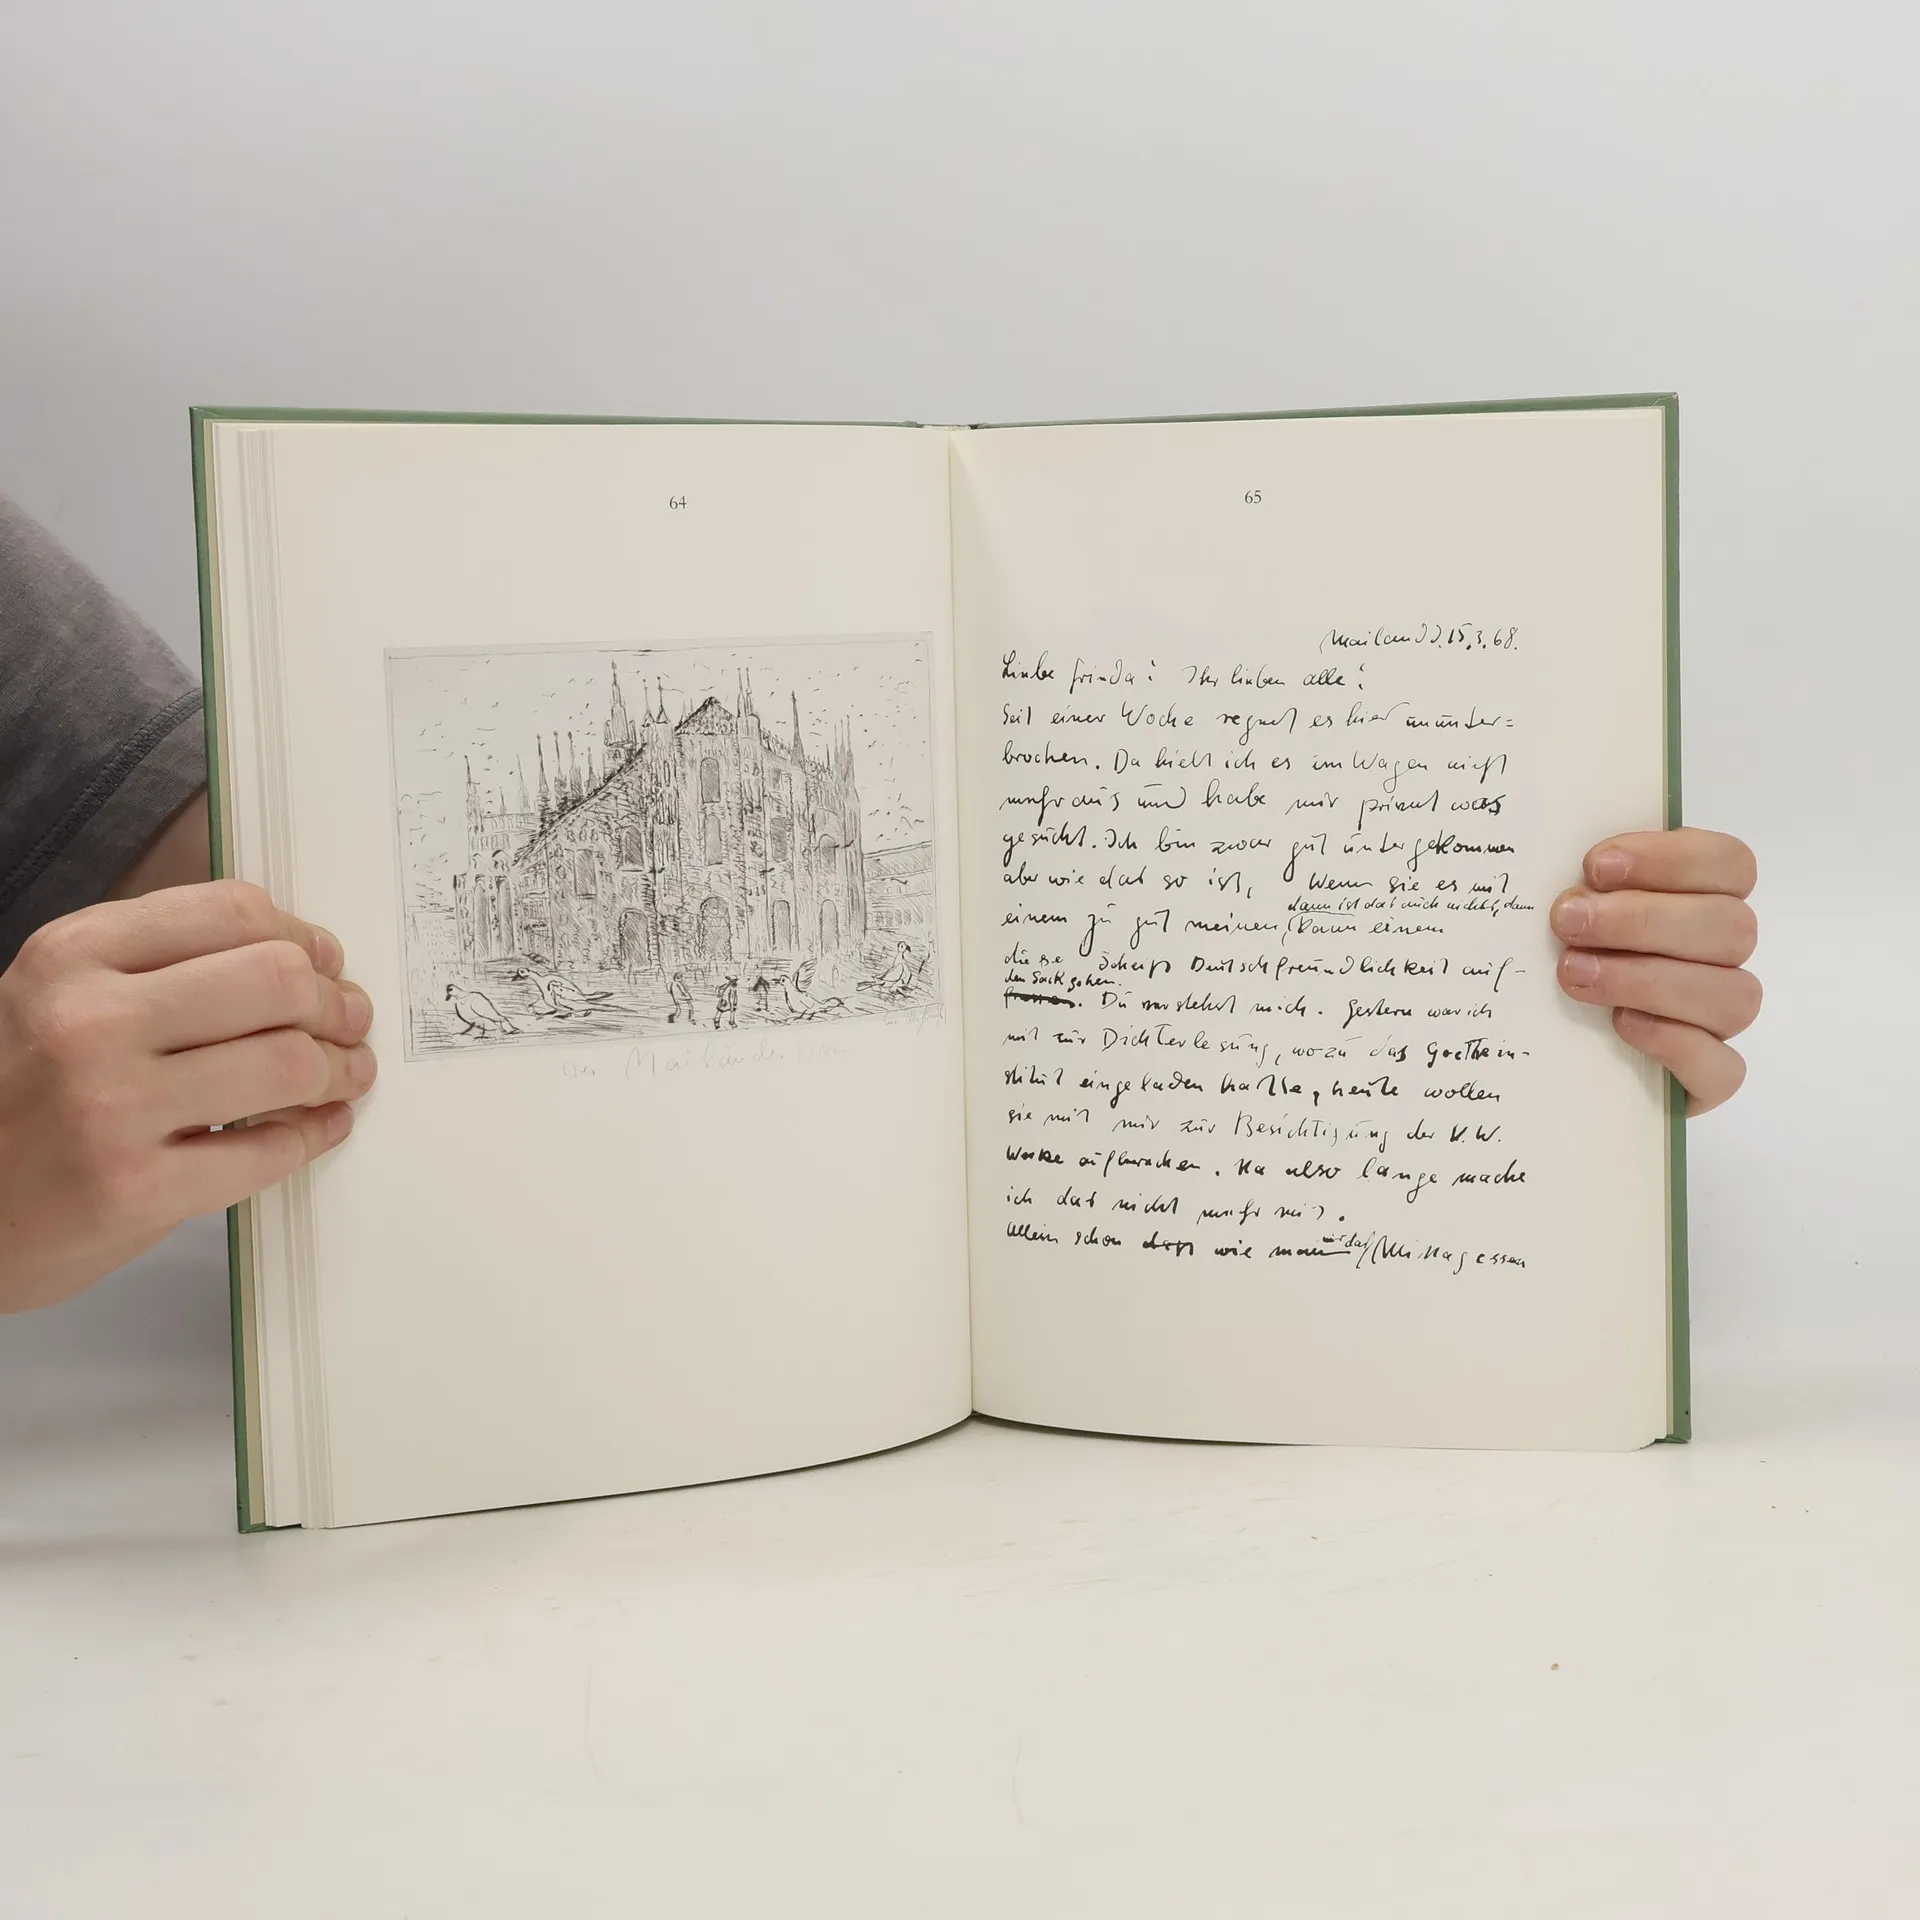 64
Der Mailänder Dom
65
Mailand d. 15.3.68.
Liebe Frieda! Ihr lieben alle!
Seit einer Woche regnet es hier ununter=
brochen. Da hielt ich es im Wagen nicht
mehr aus und habe mir privat was
gesucht. Ich bin zwar gut untergekommen
aber wie das so ist, Wenn sie es mit
dann ist das auch nichts, dann
einem zu gut meinen, kann einem
die se Deutschfreundlichkeit auf-
den Sack gehen.
Du verstehst mich. Gestern war ich
mit zur Dichterlesung, wozu das Goethein-
stitut eingeladen hatte, heute wollen
sie mit mir zur Besichtigung der V.W.
Werke aufbrechen. Na also lange mache
ich das nicht mehr mit.
Allein schon wie man das Mittagessen